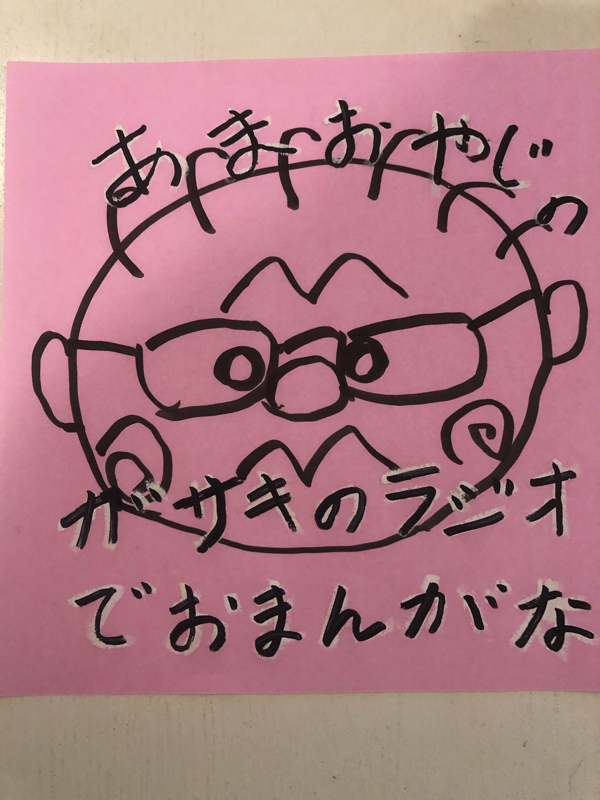 あまおやじの
ガサキのラジオ
でおまんがな